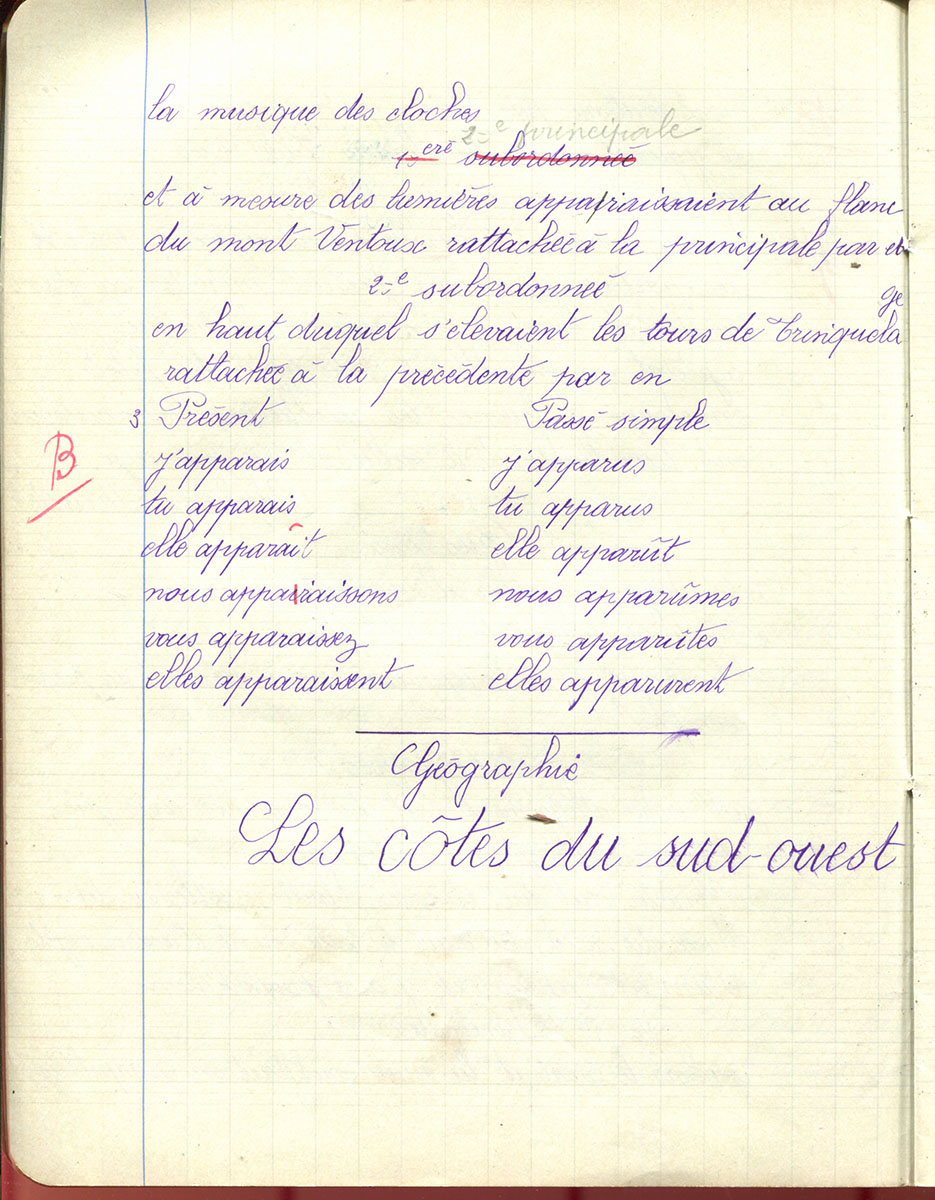 la musique des cloches
2e principale
1ère subordonnée
et à mesure des lumières appairaissaient au flanc
du mont Ventoux rattachée à la principale par et
2e subordonnée
ge
en haut duquel s'élevaient les tours de Trinquela
rattachée à la précédente par en
3 Présent Passé simple
j'apparais j'apparus
tu apparais tu apparus
elle apparaît elle apparût
B
nous appairaissons nous apparûmes
vous apparaissez vous apparûtes
elles apparaissent elles apparurent
Géographie
Les côtes du sud-ouest